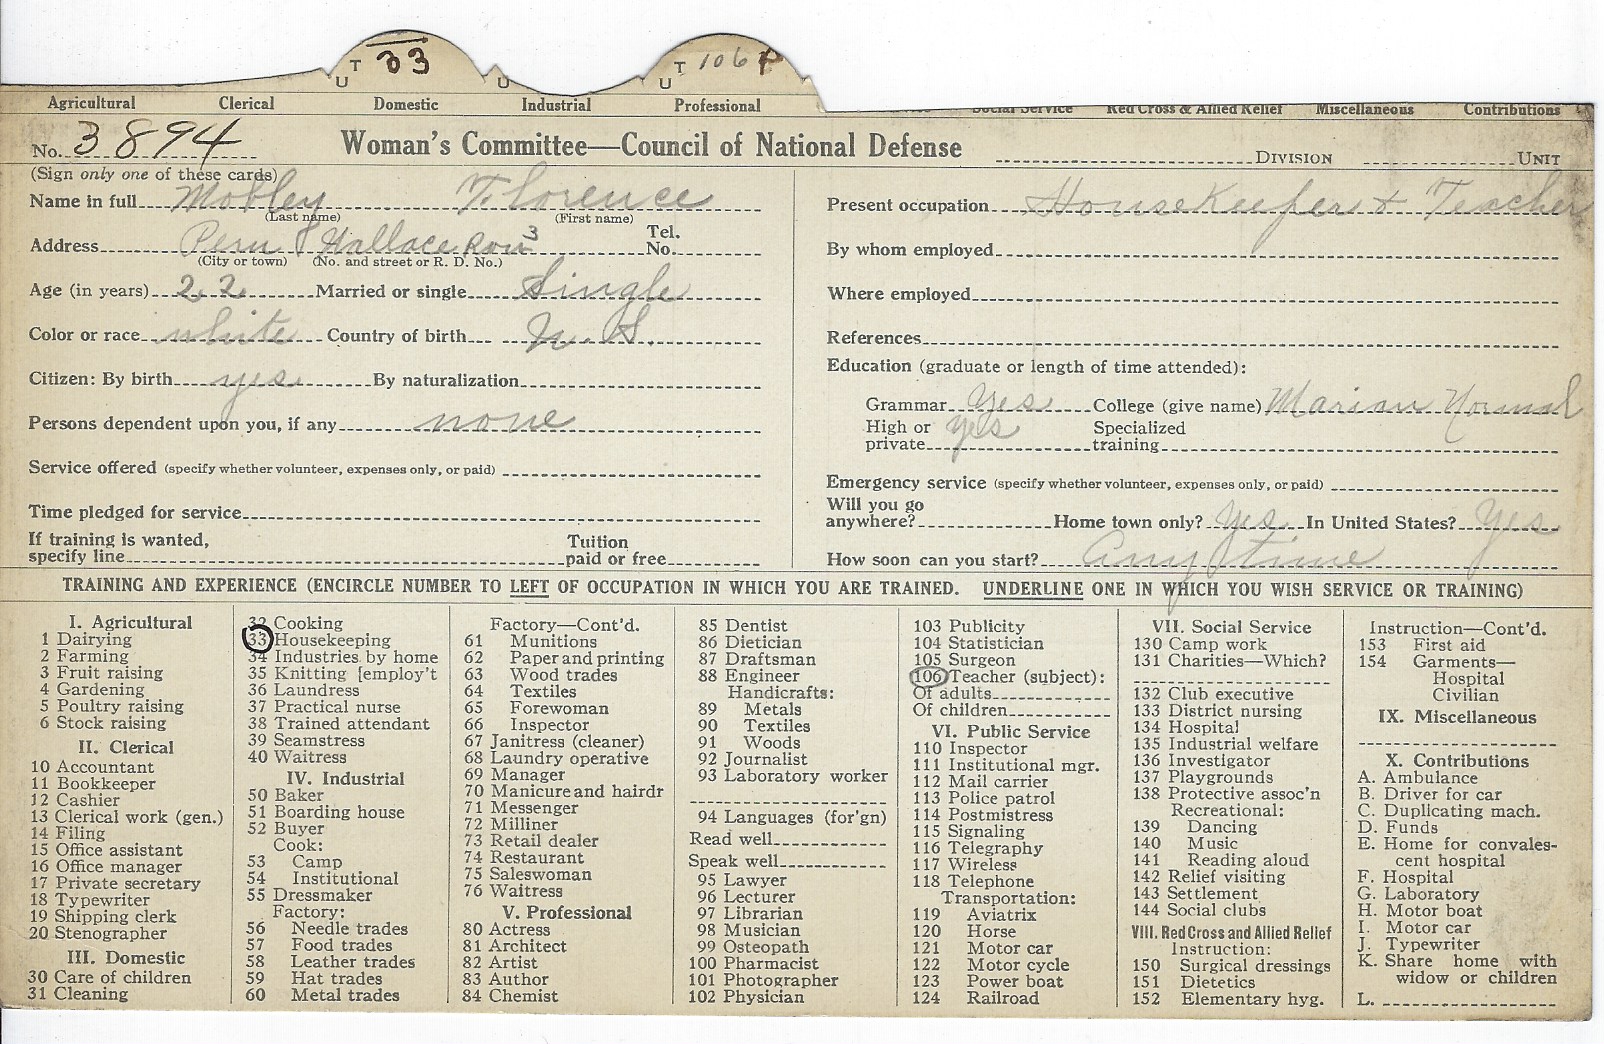 U T 33 U U T 106
Agricultural Clerical Domestic Industrial Professional Social Service Red Cross & Allied Relief Miscellaneous Contributions
No. 3894 Woman's Committee—Council of National Defense DIVISION UNIT
(Sign only one of these cards)
Name in full Mobley Florence
(Last name) (First name)
Address Peru Wallace Row 3 Tel. No.
(City or town) (No. and street or R. D. No.)
Age (in years) 22 Married or single Single
Color or race white Country of birth U. S.
Citizen: By birth yes By naturalization
Persons dependent upon you, if any none
Service offered (specify whether volunteer, expenses only, or paid)
Time pledged for service
If training is wanted,
specify line Tuition paid or free
Present occupation HouseKeeper & Teacher
By whom employed
Where employed
References
Education (graduate or length of time attended):
Grammar yes College (give name) Marian Normal
High or private yes Specialized training
Emergency service (specify whether volunteer, expenses only, or paid)
Will you go
anywhere? Home town only? yes In United States? yes
How soon can you start? any time
TRAINING AND EXPERIENCE (ENCIRCLE NUMBER TO LEFT OF OCCUPATION IN WHICH YOU ARE TRAINED. UNDERLINE ONE IN WHICH YOU WISH SERVICE OR TRAINING)
I. Agricultural
1 Dairying
2 Farming
3 Fruit raising
4 Gardening
5 Poultry raising
6 Stock raising
II. Clerical
10 Accountant
11 Bookkeeper
12 Cashier
13 Clerical work (gen.)
14 Filing
15 Office assistant
16 Office manager
17 Private secretary
18 Typewriter
19 Shipping clerk
20 Stenographer
III. Domestic
30 Care of children
31 Cleaning
32 Cooking
33 Housekeeping
34 Industries by home
35 Knitting [employ't
36 Laundress
37 Practical nurse
38 Trained attendant
39 Seamstress
40 Waitress
IV. Industrial
50 Baker
51 Boarding house
52 Buyer
Cook:
53 Camp
54 Institutional
55 Dressmaker
Factory:
56 Needle trades
57 Food trades
58 Leather trades
59 Hat trades
60 Metal trades
Factory—Cont'd.
61 Munitions
62 Paper and printing
63 Wood trades
64 Textiles
65 Forewoman
66 Inspector
67 Janitress (cleaner)
68 Laundry operative
69 Manager
70 Manicure and hairdr
71 Messenger
72 Milliner
73 Retail dealer
74 Restaurant
75 Saleswoman
76 Waitress
V. Professional
80 Actress
81 Architect
82 Artist
83 Author
84 Chemist
85 Dentist
86 Dietician
87 Draftsman
88 Engineer
Handicrafts:
89 Metals
90 Textiles
91 Woods
92 Journalist
93 Laboratory worker
94 Languages (for'gn)
Read well
Speak well
95 Lawyer
96 Lecturer
97 Librarian
98 Musician
99 Osteopath
100 Pharmacist
101 Photographer
102 Physician
103 Publicity
104 Statistician
105 Surgeon
106 Teacher (subject):
Of adults
Of children
VI. Public Service
110 Inspector
111 Institutional mgr.
112 Mail carrier
113 Police patrol
114 Postmistress
115 Signaling
116 Telegraphy
117 Wireless
118 Telephone
Transportation:
119 Aviatrix
120 Horse
121 Motor car
122 Motor cycle
123 Power boat
124 Railroad
VII. Social Service
130 Camp work
131 Charities—Which?
132 Club executive
133 District nursing
134 Hospital
135 Industrial welfare
136 Investigator
137 Playgrounds
138 Protective assoc'n
Recreational:
139 Dancing
140 Music
141 Reading aloud
142 Relief visiting
143 Settlement
144 Social clubs
VIII. Red Cross and Allied Relief
Instruction:
150 Surgical dressings
151 Dietetics
152 Elementary hyg.
Instruction—Cont'd.
153 First aid
154 Garments—
Hospital
Civilian
IX. Miscellaneous
X. Contributions
A. Ambulance
B. Driver for car
C. Duplicating mach.
D. Funds
E. Home for convales-
cent hospital
F. Hospital
G. Laboratory
H. Motor boat
I. Motor car
J. Typewriter
K. Share home with
widow or children
L.